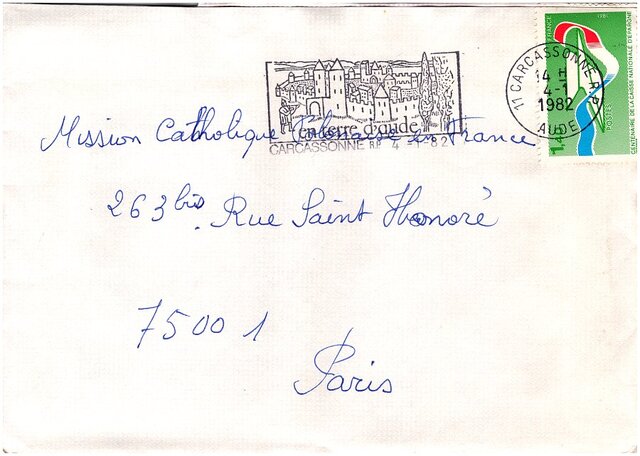 en terre d'aude
CARCASSONNE RP 4 -1 -82
11 CARCASSONNE R.P.
14 H
4-1
1982
AUDE
FRANCE
1981
CENTENAIRE DE LA CAISSE NATIONALE D'EPARGNE
POSTES
1,4
Mission Catholique Polonaise France
263 bis Rue Saint Honoré
75001
Paris